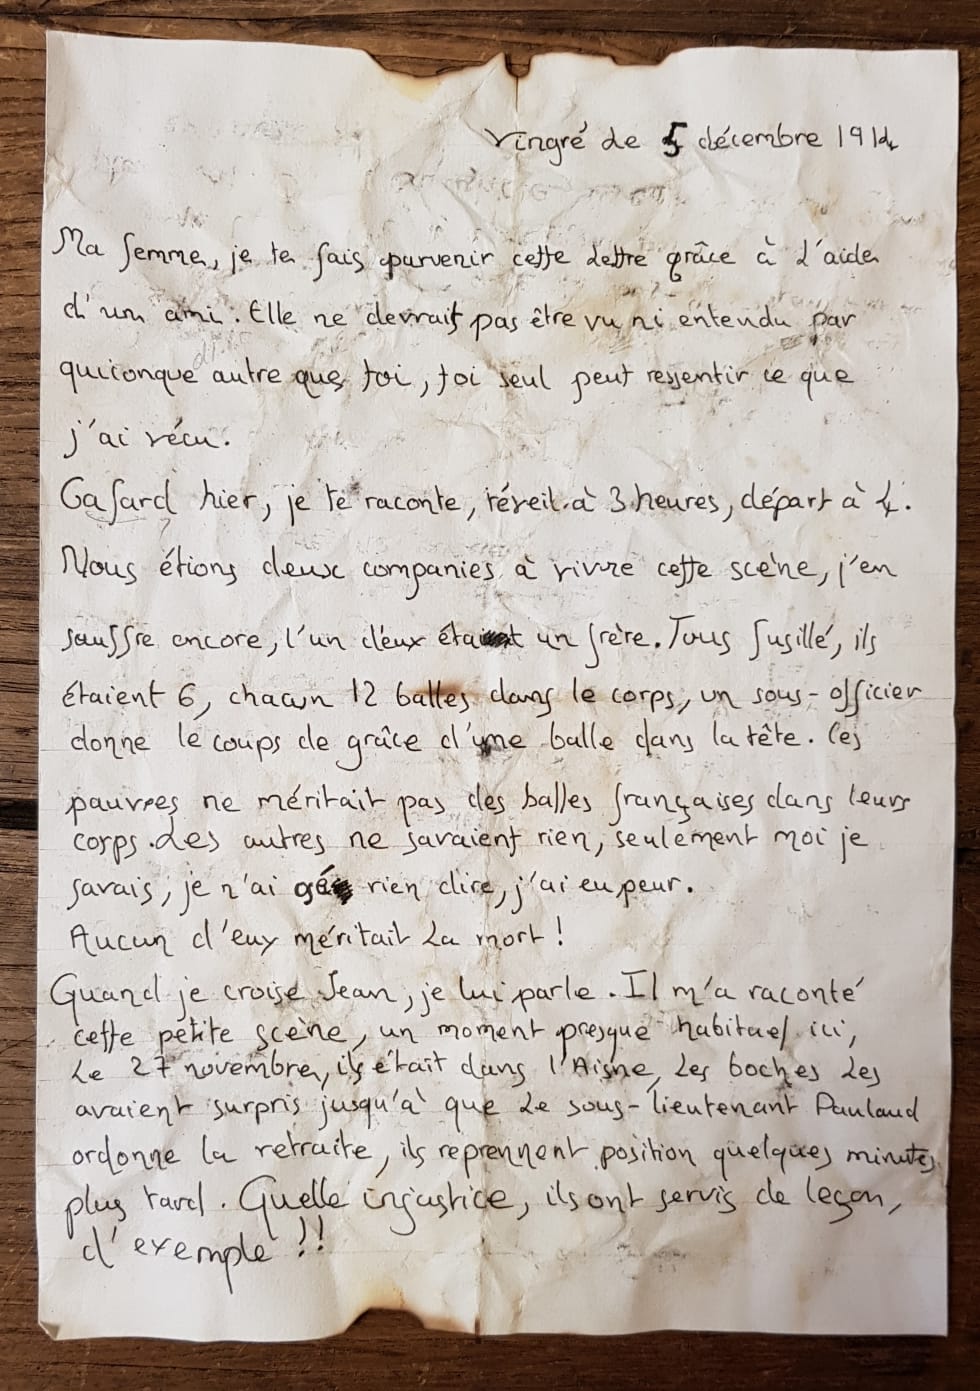 Vingré de 5 décembre 1914
Ma femme, je te fais parvenir cette lettre grâce à l'aide
d'un ami. Elle ne devrait pas être vu ni entendu par
quiconque autre que toi, toi seul peut ressentir ce que
j'ai vécu.
Cafard hier, je te raconte, réveil à 3 heures, départ à 4.
Nous étions deux companies à vivre cette scène, j'en
souffre encore, l'un d'eux était un frère. Tous fusillé, ils
étaient 6, chacun 12 balles dans le corps, un sous-officier
donne le coups de grâce d'une balle dans la tête. Ces
pauvres ne méritait pas des balles françaises dans leurs
corps. Les autres ne savaient rien, seulement moi je
savais, je n'ai rien dire, j'ai eu peur.
Aucun d'eux méritait la mort !
Quand je croise Jean, je lui parle. Il m'a raconté
cette petite scène, un moment presque habituel ici,
Le 27 novembre, ils était dans l'Aisne, les boches les
avaient surpris jusqu'à que le sous-lieutenant Paulaud
ordonne la retraite, ils reprennent position quelques minutes
plus tard. Quelle injustice, ils ont servis de leçon,
d'exemple !!